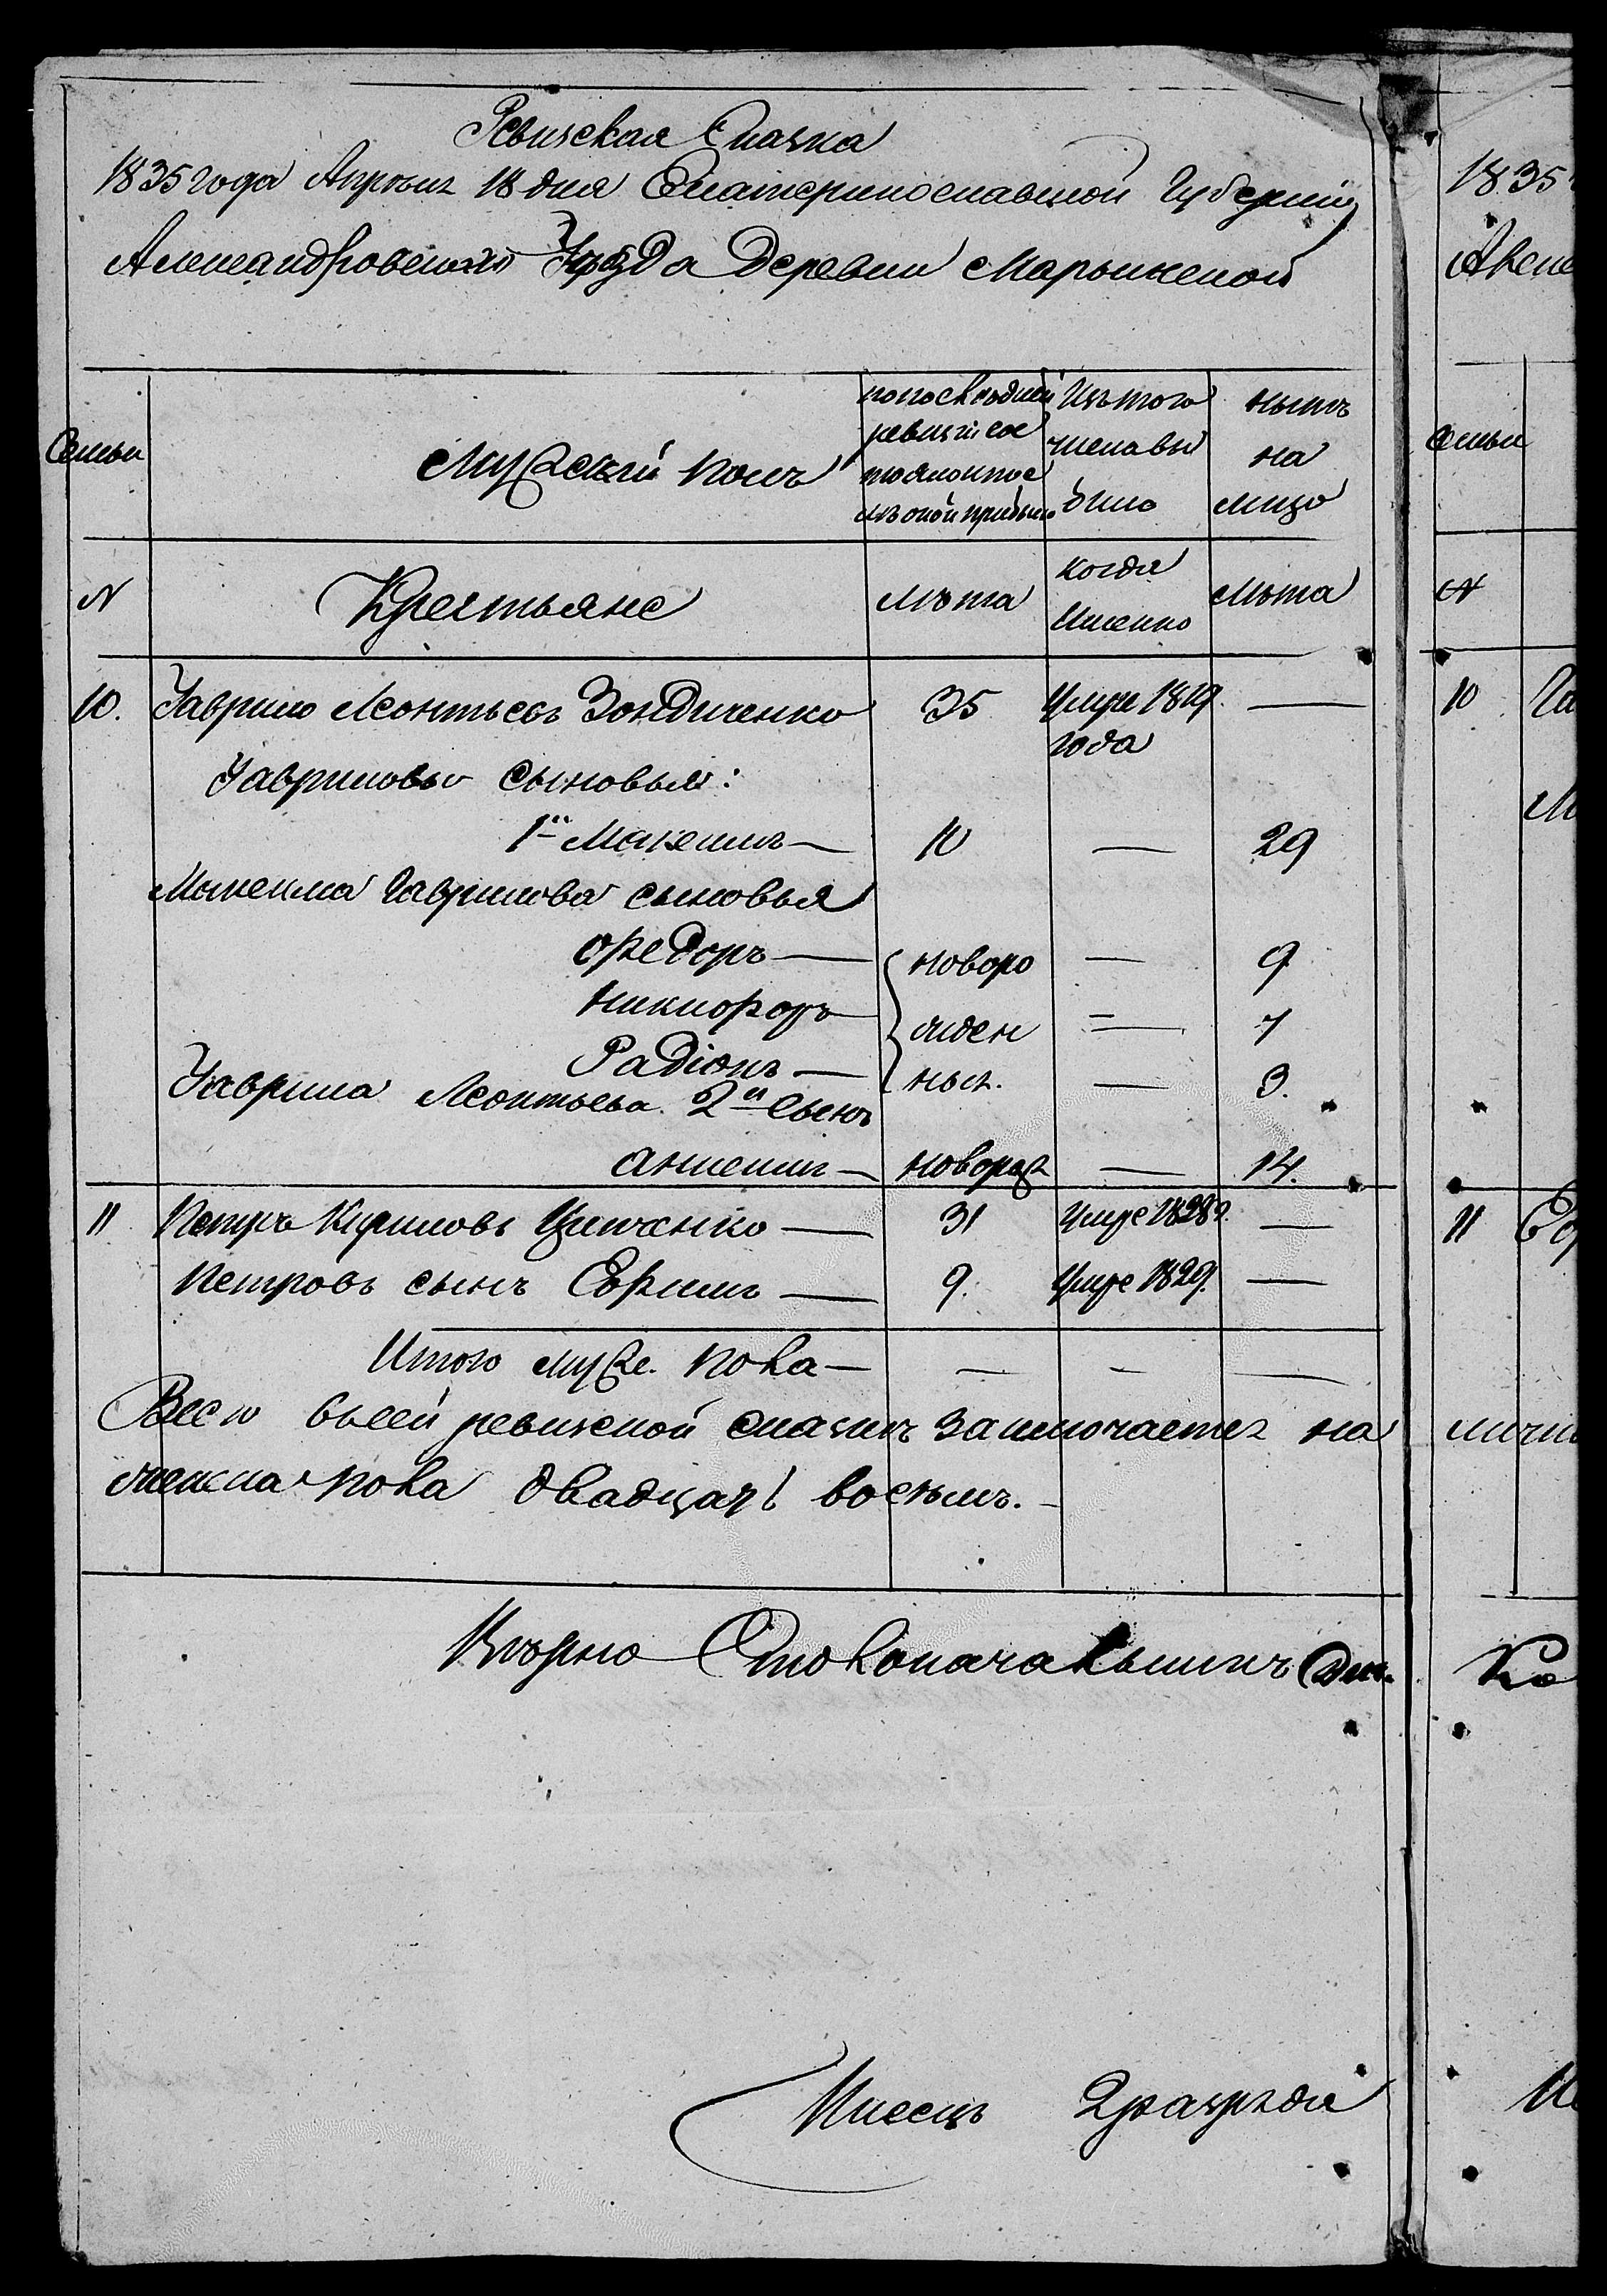 Ревизская Сказка
1835 года Апрѣля 18 дня Екатеринославской Губерніи
Александровскаго Уѣзда деревни Марьинской
Семьи
Мужескій полъ
по последней ревизіи состояло и после оной прибыло
Изъ того числа выбыло
нынѣ на лицо
N
Крестьяне
лѣта
когда Именно
лѣта
10. Гаврило Леонтьевъ Зондиченко 35 Умре 1819. года —
Гавриловы сыновья:
1й Максимъ — 10 — 29
Максима Гаврилова сыновья
Федоръ — новоро — 9
Никифоръ — жден — 7
Радіонъ — ныя. — 3.
Гаврила Леонтьева 2й Сынъ
Аксентий — новорож — 14.
11 Петръ Кириловъ — 31 Умре 1828г. —
Петровъ сынъ Ефимъ — 9. Умре 1829. —
Итого муже. пола — — — —
Всего въ сей ревизской сказкѣ заключается на
лицо мужска пола двадцать восемь.
Вѣрно Столоначальникъ
Писецъ 2го разряда
1835
Алекс
Семьи
N
10 Га
М
11
лични
Ко